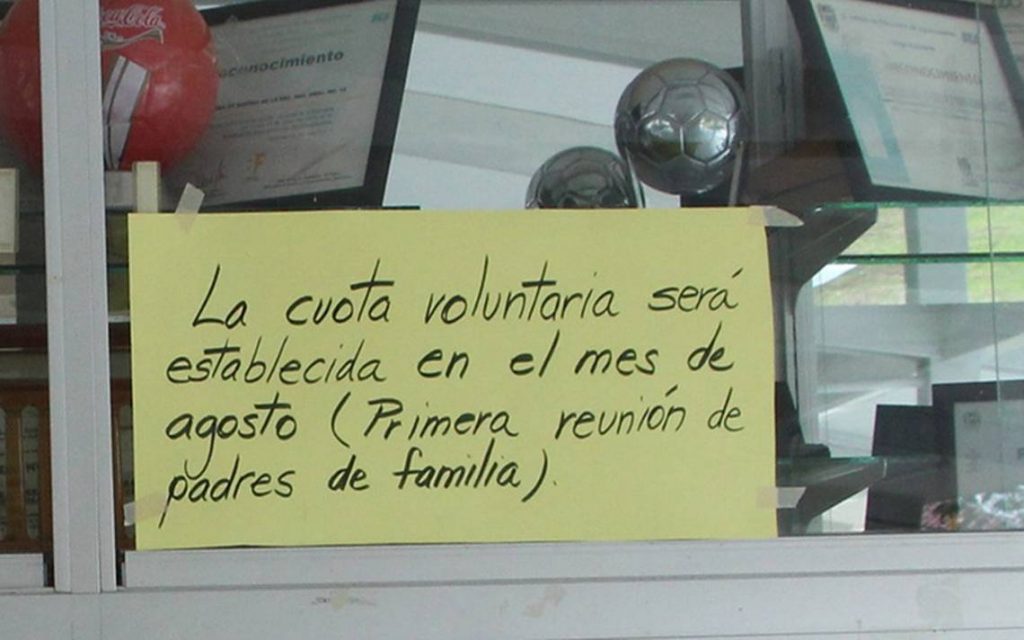 Coca-Cola
conocimiento
La cuota voluntaria será
establecida en el mes de
agosto (Primera reunión de
padres de familia).